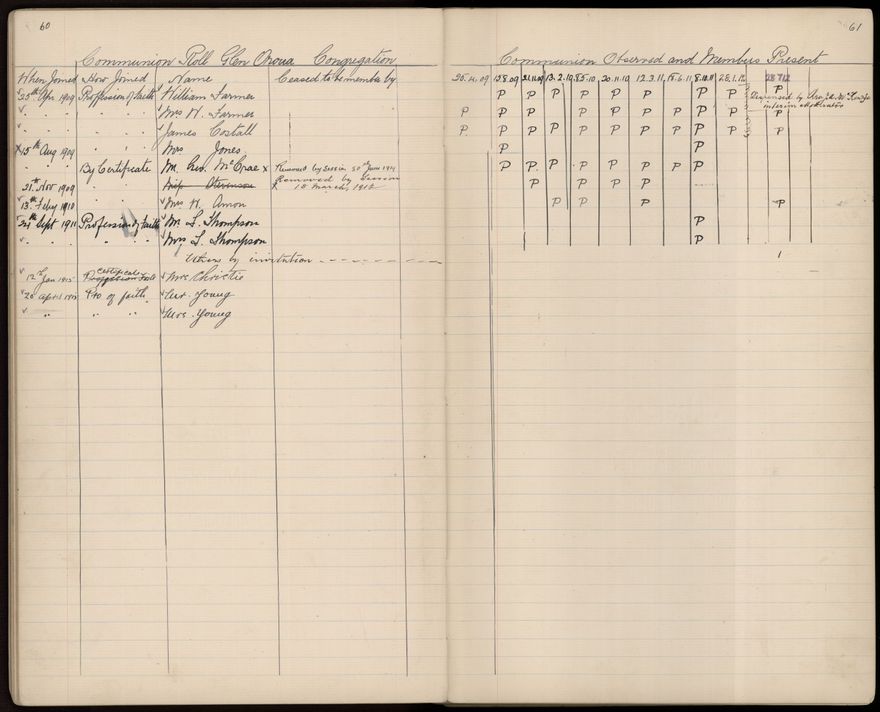 60
Communion Roll Glen Oroua Congregation
When Joined How Joined Name Ceased to be member by
25th Apr 1909 Profession of Faith William Farmer
" " " Mrs H. Farmer
" " " James Costall
15th Aug 1909 " " Mrs Jones
" " By Certificate Mr. Geo. McCrae x Removed by Session 30th June 1911
21st Nov 1909 " Miss Stevenson x Removed by Session
18 March, 1912
13th Feby 1910 " " Mrs H. Amon
24th Sept 1911 Profession of Faith Mr. L. Thompson
" " " " Mrs L. Thompson
Others by invitation
12th Jan 1913 Certificate Mrs Christie
20 April 1913 Pro of faith Mr. Young
" " " Mrs. Young
61
Communion Observed and Members Present
25.4.09 15.8.09 21.11.09 13.2.10 8.5.10 20.11.10 12.3.11 18.6.11 8.10.11 28.1.12 28 7 12
P P P P P P P P P P
Dispensed by
interim Moderator
P P P P P P P P P P
P P P P P P P P P P P
P P
P P P P P P P P
P P P P
P P P P
P
P
1